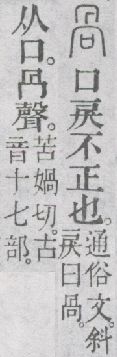 咼口戾不正也。通俗文。斜戾曰咼。
从口。冎聲。苦媧切。古音十七部。